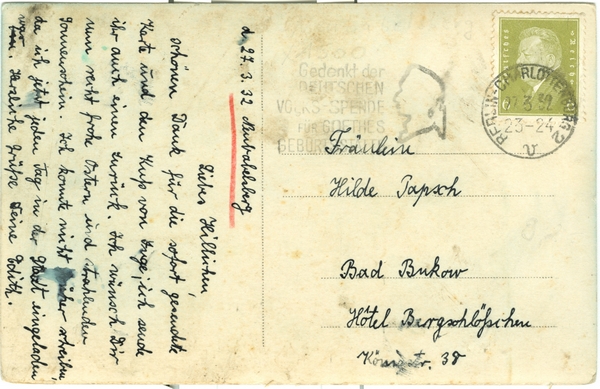 d. 27.3.32 Neubabelsberg
Liebes Hillichen!
schönen Dank für die sofort gesandte
Karte und den Kuß von Inge, ich sende
ihr auch einen zurück. Ich wünsch Dir
nun recht frohe Ostern und strahlenden
Sonnenschein. Ich konnte nicht früher schreiben,
da ich jetzt jeden Tag in der Stadt eingeladen
war. Herzliche Grüße Deine Edith.
Gedenkt der
DEUTSCHEN
VOLKS-SPENDE
FÜR GOETHES
GEBURTS
BERLIN-CHARLOTTENBURG 2
27.3.32
23-24
Fräulein
Hilde Papsch
Bad Bukow
Hôtel Bergschlößchen
Königstr. 38